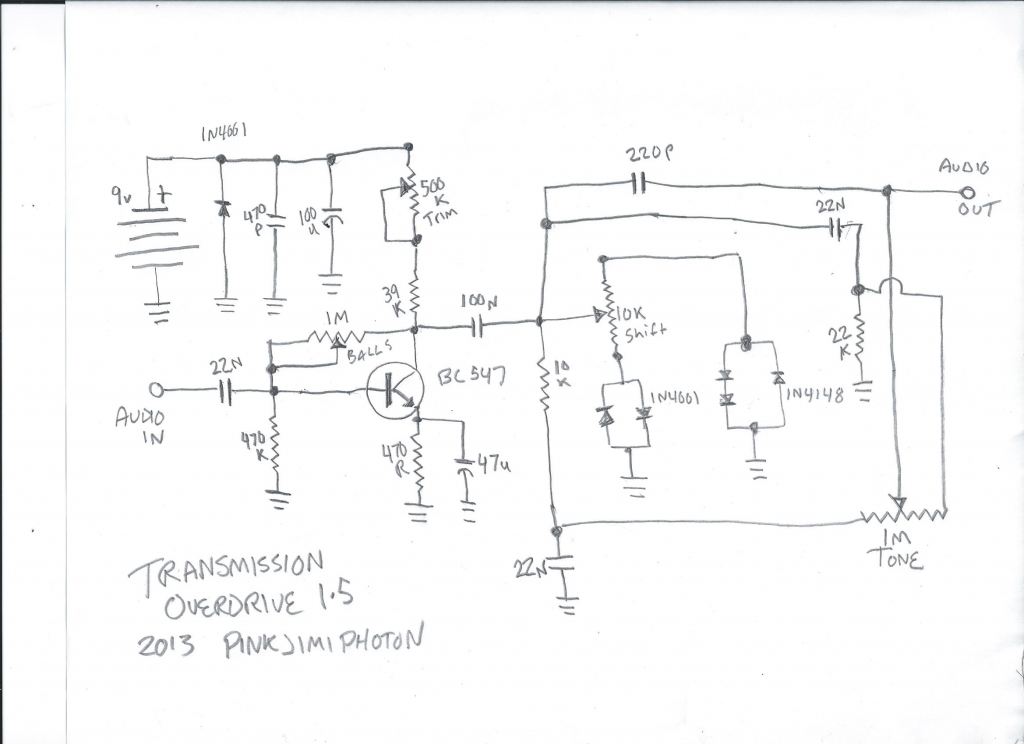 1N4001
9v +
470
P
100
u
500
K
Trim
39
K
1M
BALLS
100N
22N
AUDIO
IN
470
K
BC547
470
R
47u
220P
AUDIO
OUT
22N
10K
Shift
10
K
1N4001
1N4148
22
K
22N
1M
TONE
TRANSMISSION
OVERDRIVE 1.5
2013 PINKJIMIPHOTON